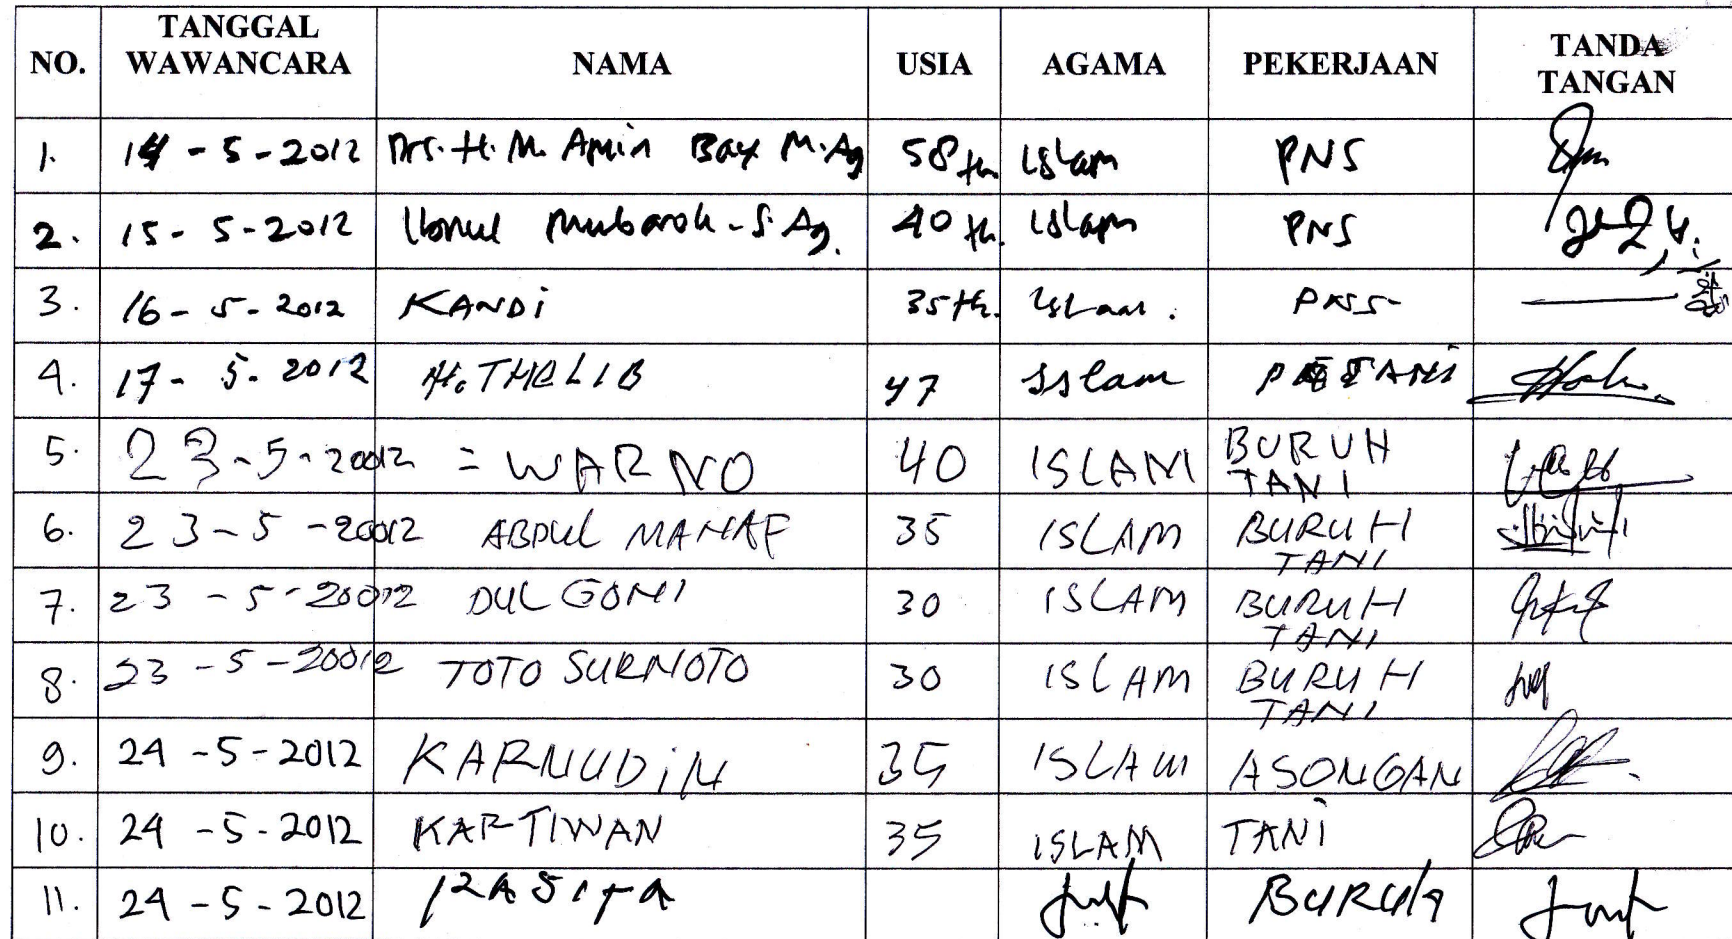 NO. TANGGAL WAWANCARA NAMA USIA AGAMA PEKERJAAN TANDA TANGAN
1. 14 - 5 - 2012 Drs. H. M. Amin Bay M.Ag 58 th Islam PNS
2. 15 - 5 - 2012 Mubarok - S.Ag. 40 th. Islam PNS
3. 16 - 5 - 2012 KANDi 35 th. Islam. PNS
4. 17 - 5 - 2012 H. THOLIB 47 Islam PETANi
5. 23 - 5 - 20012 = WARNO 40 ISLAM BURUH TANI
6. 23 - 5 - 20012 ABDUL MANAF 35 ISLAM BURUH TANI
7. 23 - 5 - 20012 DUL GONI 30 ISLAM BURUH TANI
8. 23 - 5 - 20012 TOTO SURNOTO 30 ISLAM BURUH TANI
9. 24 - 5 - 2012 KARNUDiN 35 ISLAM ASONGAN
10. 24 - 5 - 2012 KARTIWAN 35 ISLAM TANi
11. 24 - 5 - 2012 BURUH